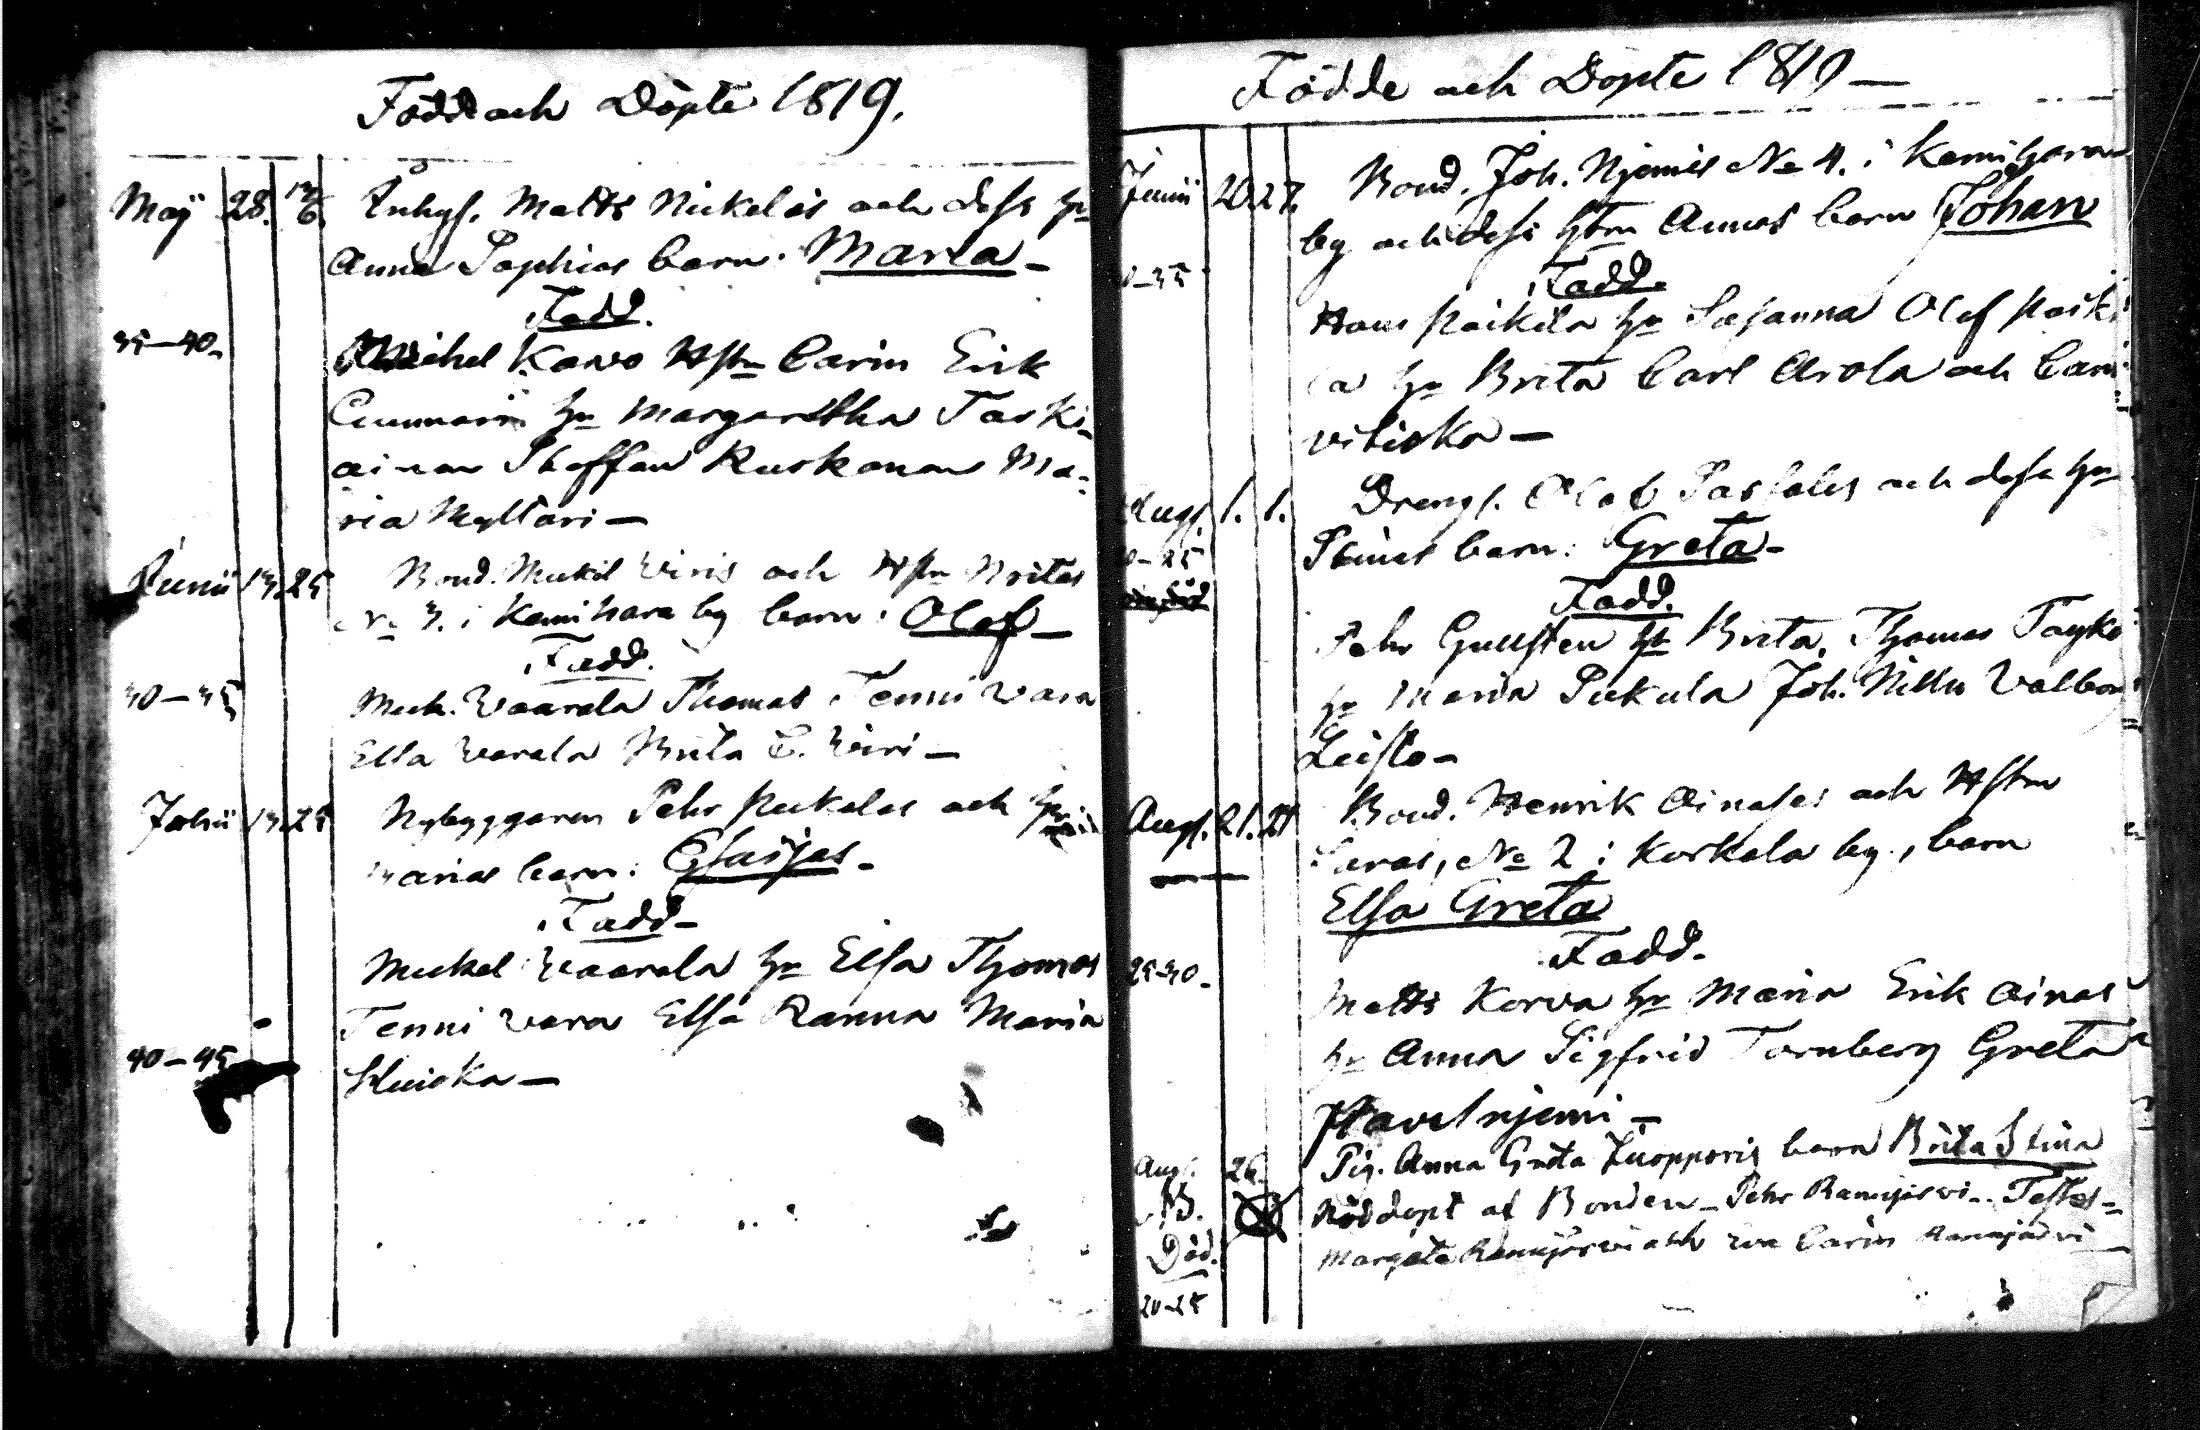 Född och Döpte 1819.
Maij 28. 12/6. Inhys. Matts Nickelas och dess hu
Anna Sophias barn. Maria –
Fadd.
35–40. Michel Kavo Hstn Carin Erik
Cummari hu Margaretha Taski=
ainen Staffan Ruskanen Ma=
ria Myltari –
Junii 13. 25 Bond. Mickel Viris och Hstn Britas
No 3. i Kemihara by barn: Olof –
Fadd.
30–35 Mick. Vaarala Thomas Tennivara
Elsa Varala Brita C. Viri –
Junii 13. 25 Nybyggaren Pehr Pukalas och hu
Marias barn: Esaijas –
Fadd –
Mickel Vaarala hu Elsa Thomas
Tennivara Elsa Ranua Maria
40–45
Födde och Döpte 1819 –
Junii 20. 27. Bond. Joh. Njemis No 4. i Kemihara
by och dess hstru Annas barn Johan
Fadd.
Hans Paikila hu Susanna Olof Paiki
la hu Brita Carl Arola och Carin
Augs. 1. 1. Drengs. Olof och dess hu
Stinas barn: Greta –
Fadd.
Pehr Gullsten hu Brita, Thomas
hu Maria Joh. Valborg
Leisto –
Augs. 21. 21 Bond. Henrik Ainases och Hstru
Saras, No 2 i Korkala by, barn
Elsa Greta
Fadd.
25–30 – Matts Korva hu Maria Erik Ainas
hu Anna Sigfrid Tornberg Greta
Havelnjemi –
Augs. 26. Pig. Anna Greta Juopperis barn Brita Stina
B. Nöddöpt af Bonden – Pehr Ranujärvi – Testes=
Död. Margeta Ranujärvi och Eva Carin Ranujärvi –
20–25